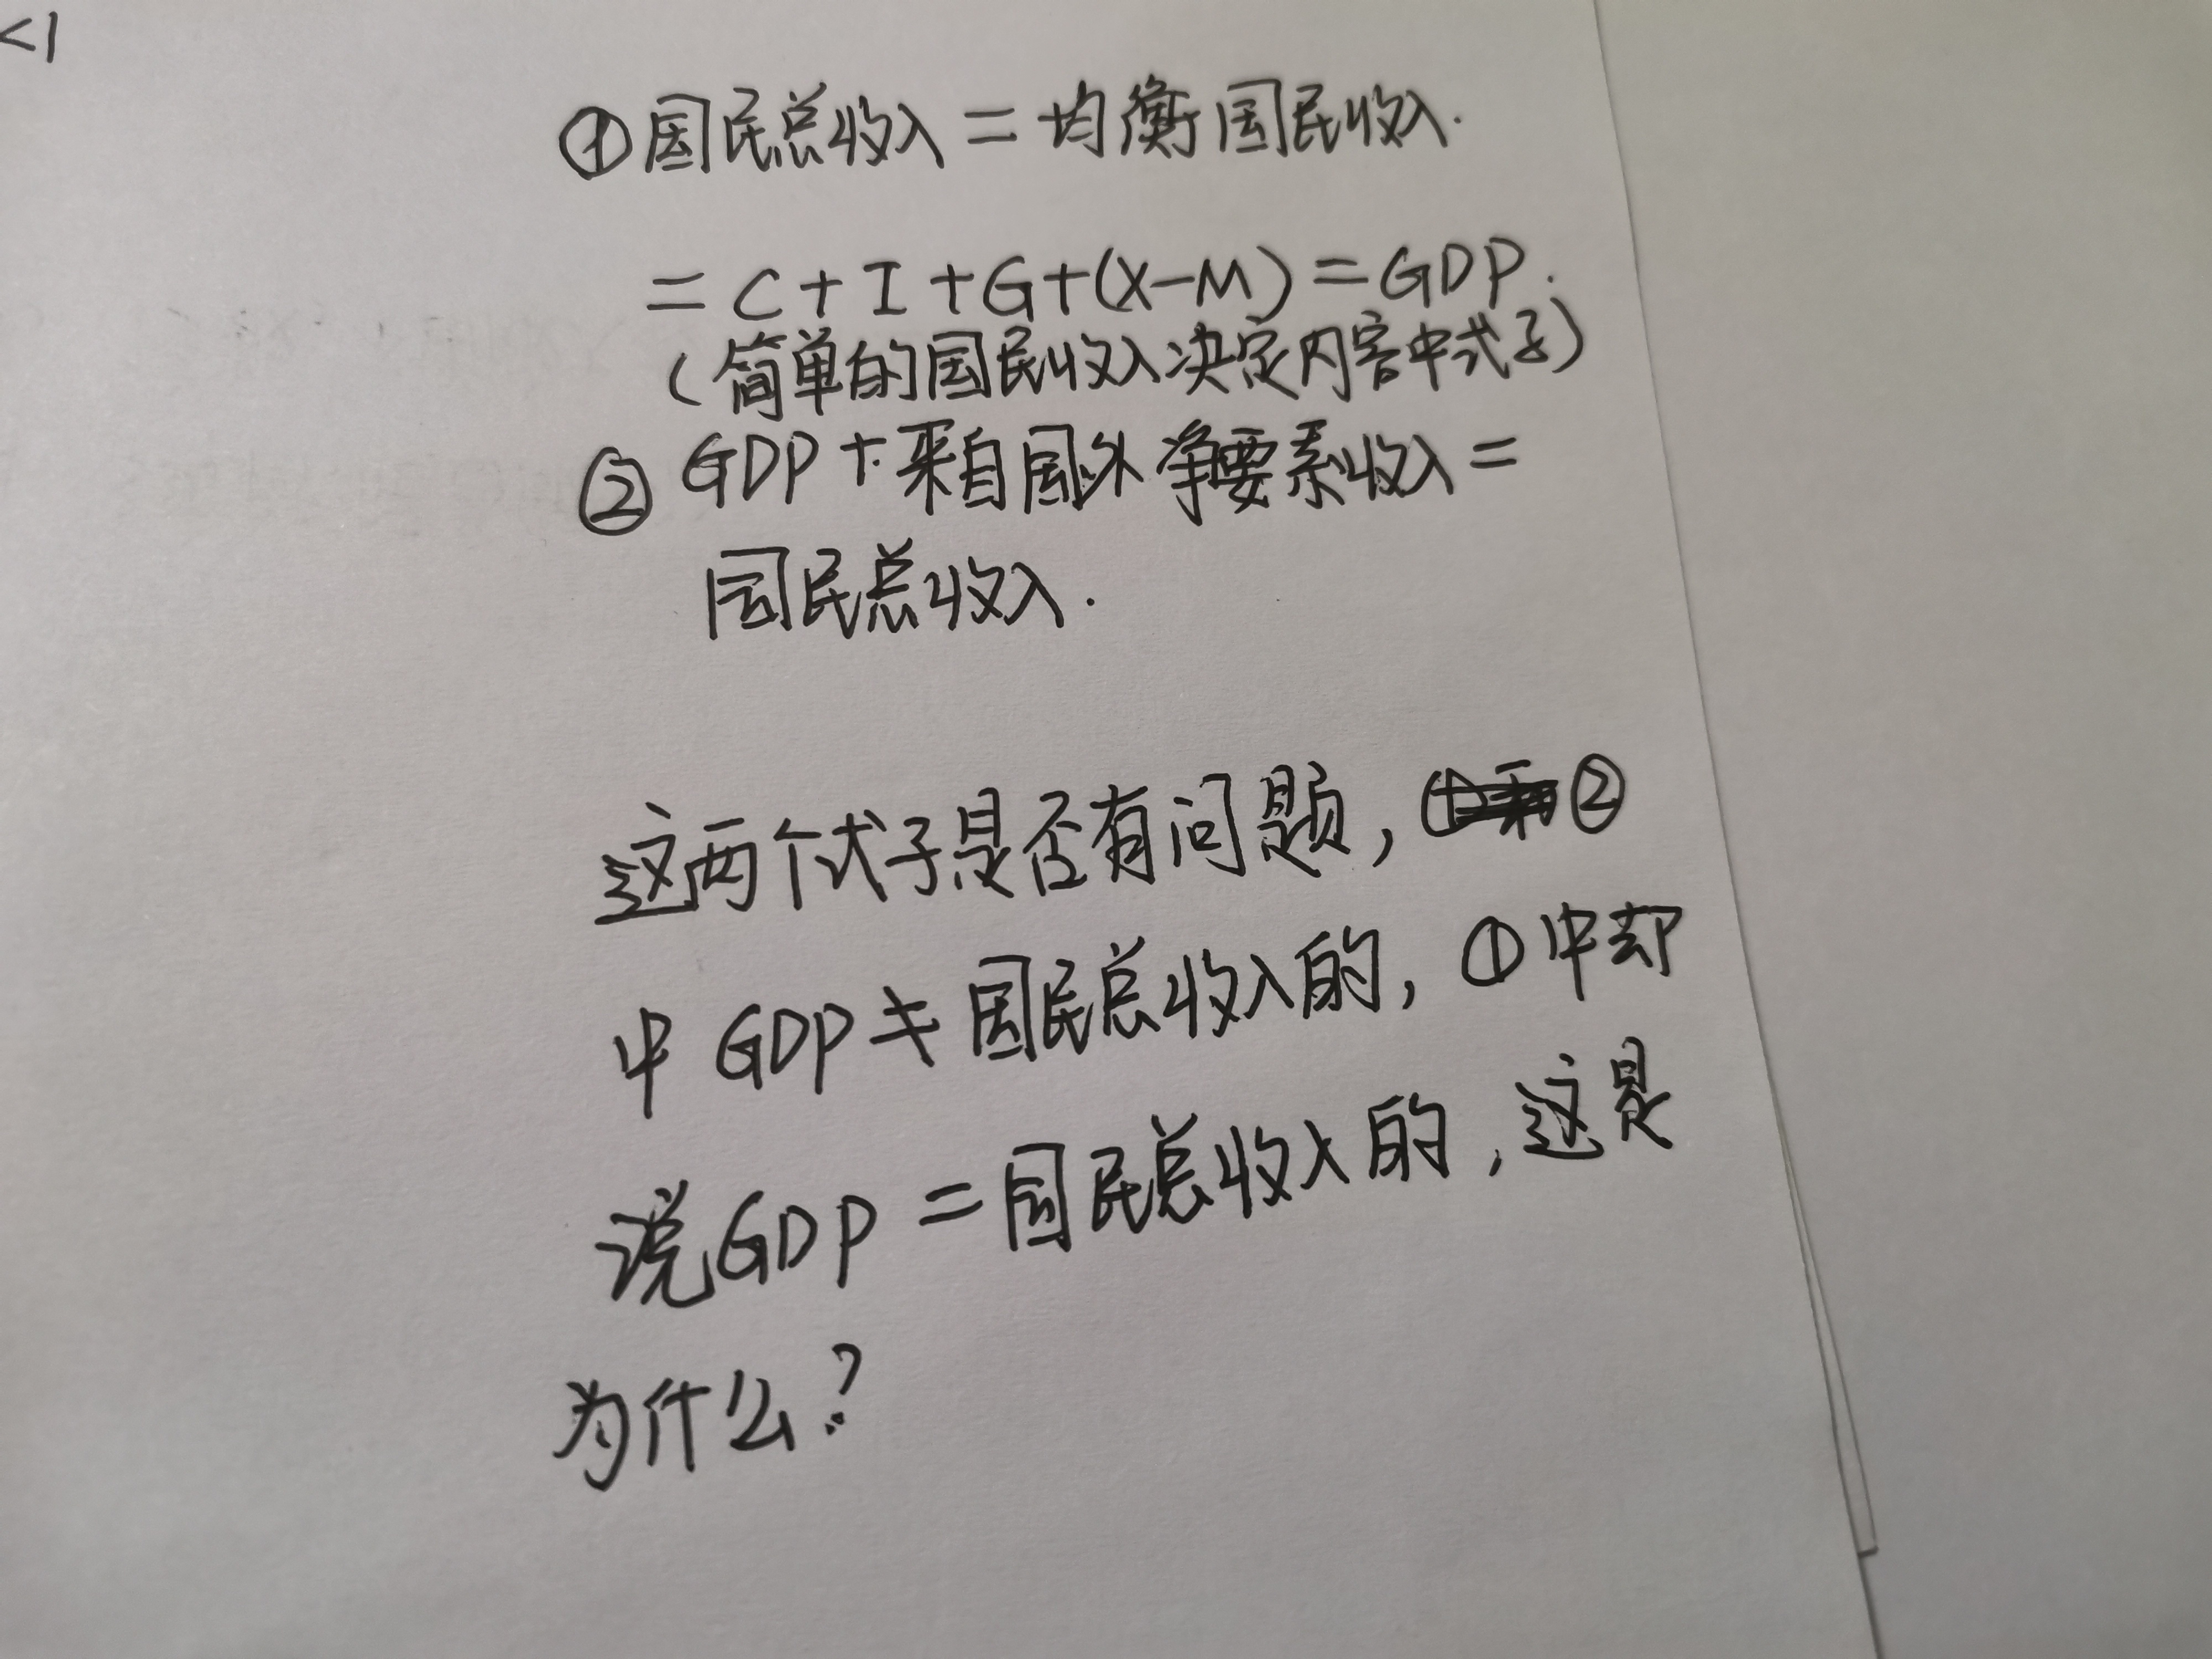 <1
①国民总收入=均衡国民收入.
=C+I+G+(X-M)=GDP.
(简单的国民收入决定内容中式子)
② GDP+来自国外净要素收入=
国民总收入.
这两个式子是否有问题,②
中GDP≠国民总收入的,①中却
说GDP=国民总收入的,这是
为什么?